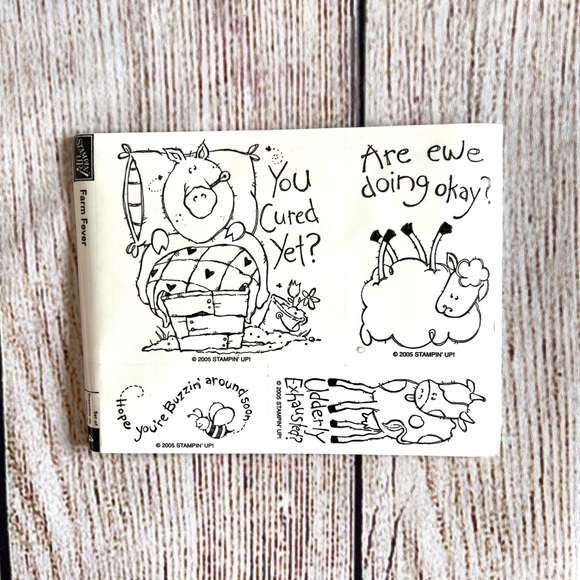 STAMPIN' UP!
Farm Fever
Set of
4
You
Cured
Yet?
© 2005 STAMPIN' UP!
Are ewe
doing okay?
© 2005 STAMPIN' UP!
Hope you're Buzzin' around soon
© 2005 STAMPIN' UP!
Udderly
Exhausted?
© 2005 STAMPIN' UP!